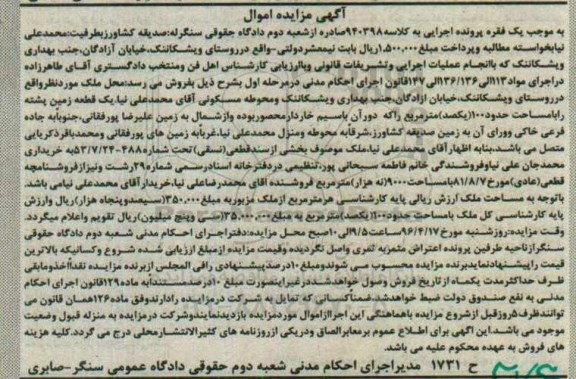 آگهی مزایده اموال
به موجب یک فقره پرونده اجرایی به کلاسه ۹۴۰۳۹۸صادره ازشعبه دوم دادگاه حقوقی سنگرله:صدیقه کشاورزبطرفیت:محمدعلی
نیابخواسته مطالبه وپرداخت مبلغ۱,۵۰۰,۰۰۰ریال بابت نیمعشردولتی-واقع درروستای ویشکاننک،خیابان آزادگان،جنب بهداری
ویشکاننک که باانجام عملیات اجرایی وتشریفات قانونی وباارزیابی کارشناس اهل فن ومنتخب دادگستری آقای طاهرزاده
دراجرای مواد۱۱۳الی۱۳۶/۱۲۶الی۱۴۷قانون اجرای احکام مدنی درمرحله اول بشرح ذیل بفروش می رسد:محل ملک موردنظرواقع
درروستای ویشکاننک،خیابان ازادگان،جنب بهداری ویشکاننک ومحوطه مسکونی آقای محمدعلی نیا.یک قطعه زمین پشته
رابامساحت حدود۱۰۰(یکصد)مترمربع راکه دورآن باسیم خاردارمحصوربوده وازشمال به زمین علیرضا پورفقانی،جنوبابه جاده
فرعی خاکی وورای آن به زمین صدیقه کشاورز،شرقابه محوطه ومنزل محمدعلی نیا،غربابه زمین های پورفقانی ومحمدباقرذکریایی
متصل می باشد.بنابه اظهارآقای محمدعلی نیا،ملک موصوف بخشی ازسندقطعی(نسقی)تحت شماره۴۸۸-۵۲/۷/۲۳به خریداری
محمدجان علی نیاوفروشندگی خانم فاطمه سبحانی پور،تنظیمی دردفترخانه اسنادرسمی شماره۲۹رشت ونیزازفروشنامچه
قطعی(عادی)مورخ۸۱/۸/۷بامساحت۹۰۰۰(نه هزار)مترمربع فروشنده اقای محمدرضاعلی نیا،خریدارآقای محمدعلی نیامی باشد.
باتوجه به مساحت ملک ارزش ریالی پایه کارشناسی هرمترمربع ازملک مزبوربه مبلغ۳۵۰,۰۰۰(سیصدوپنجاه هزار)ریال وارزش
پایه کارشناسی کل ملک بامساحت حدود۱۰۰(یکصد)مترمربع به مبلغ۳۵,۰۰۰,۰۰۰(سی وپنج میلیون)ریال تقویم واعلام میگردد.
وقت مزایده:روزشنبه مورخ۹۶/۴/۱۷ساعت۹/۵الی۱۰صبح محل مزایده:دفتراجرای احکام مدنی شعبه دوم دادگاه حقوقی
سنگرازناحیه طرفین پرونده اعتراض مثمربه ثمری واصل نگردیده وقیمت مزایده ازمبلغ ارزیابی شده شروع وکسانیکه بالاترین
قیمت راپیشنهادنمایدبرنده مزایده محسوب می شوندومبلغ۱۰درصدپیشنهادی رافی المجلس ازبرنده مزایده نقدااخذومابقی
ظرف حداکثرمدت یکماه ازتاریخ فروش وصول خواهدشد.درغیراینصورت مبلغ۱۰درصدمستندابه ماده۱۲۹قانون اجرای احکام
مدنی به نفع صندوق دولت ضبط خواهدشد.ضمناکسانی که تمایل به شرکت درمزایده رادارندوفق ماده۱۲۶همان قانون می
توانندظرف۵روزقبل ازشروع مزایده باهماهنگی این اجراازاموال موردمزایده بازدیدنمایندوشرکت درمزایده به منزله قبول وضعیت
موجود می باشد.این آگهی برای اطلاع عموم برمعابرالصاق ودریکی ازروزنامه های کثیرالانتشارمحلی درج می گردد.کلیه هزینه
های فروش به عهده محکوم علیه می باشد.
ح ۱۷۳۱ مدیراجرای احکام مدنی شعبه دوم حقوقی دادگاه عمومی سنگر-صابری